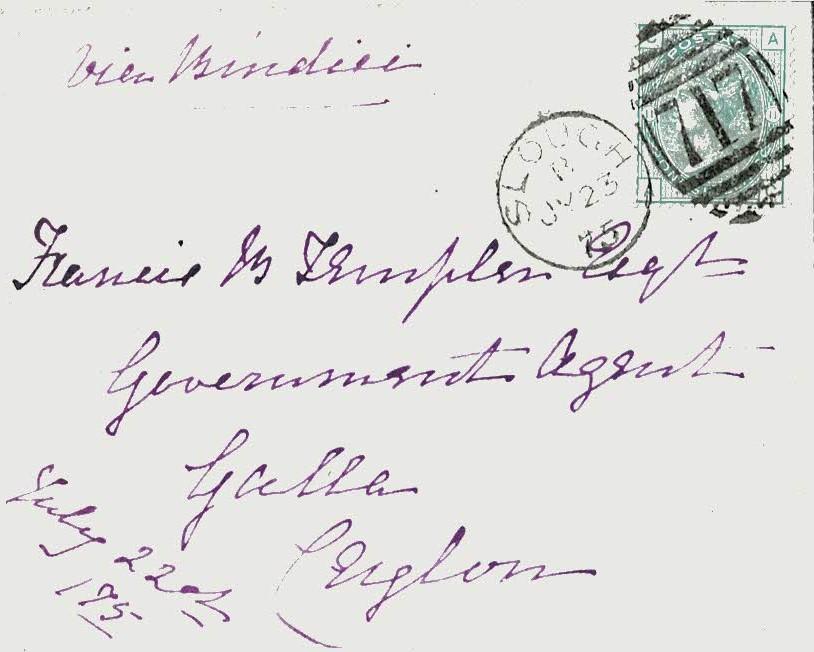 Via Brindisi
C A
POSTAGE
717
SLOUGH
B
JY 23
75
Francis B Templer Esqre
Government Agent
Galle
Ceylon
July 22nd
/75